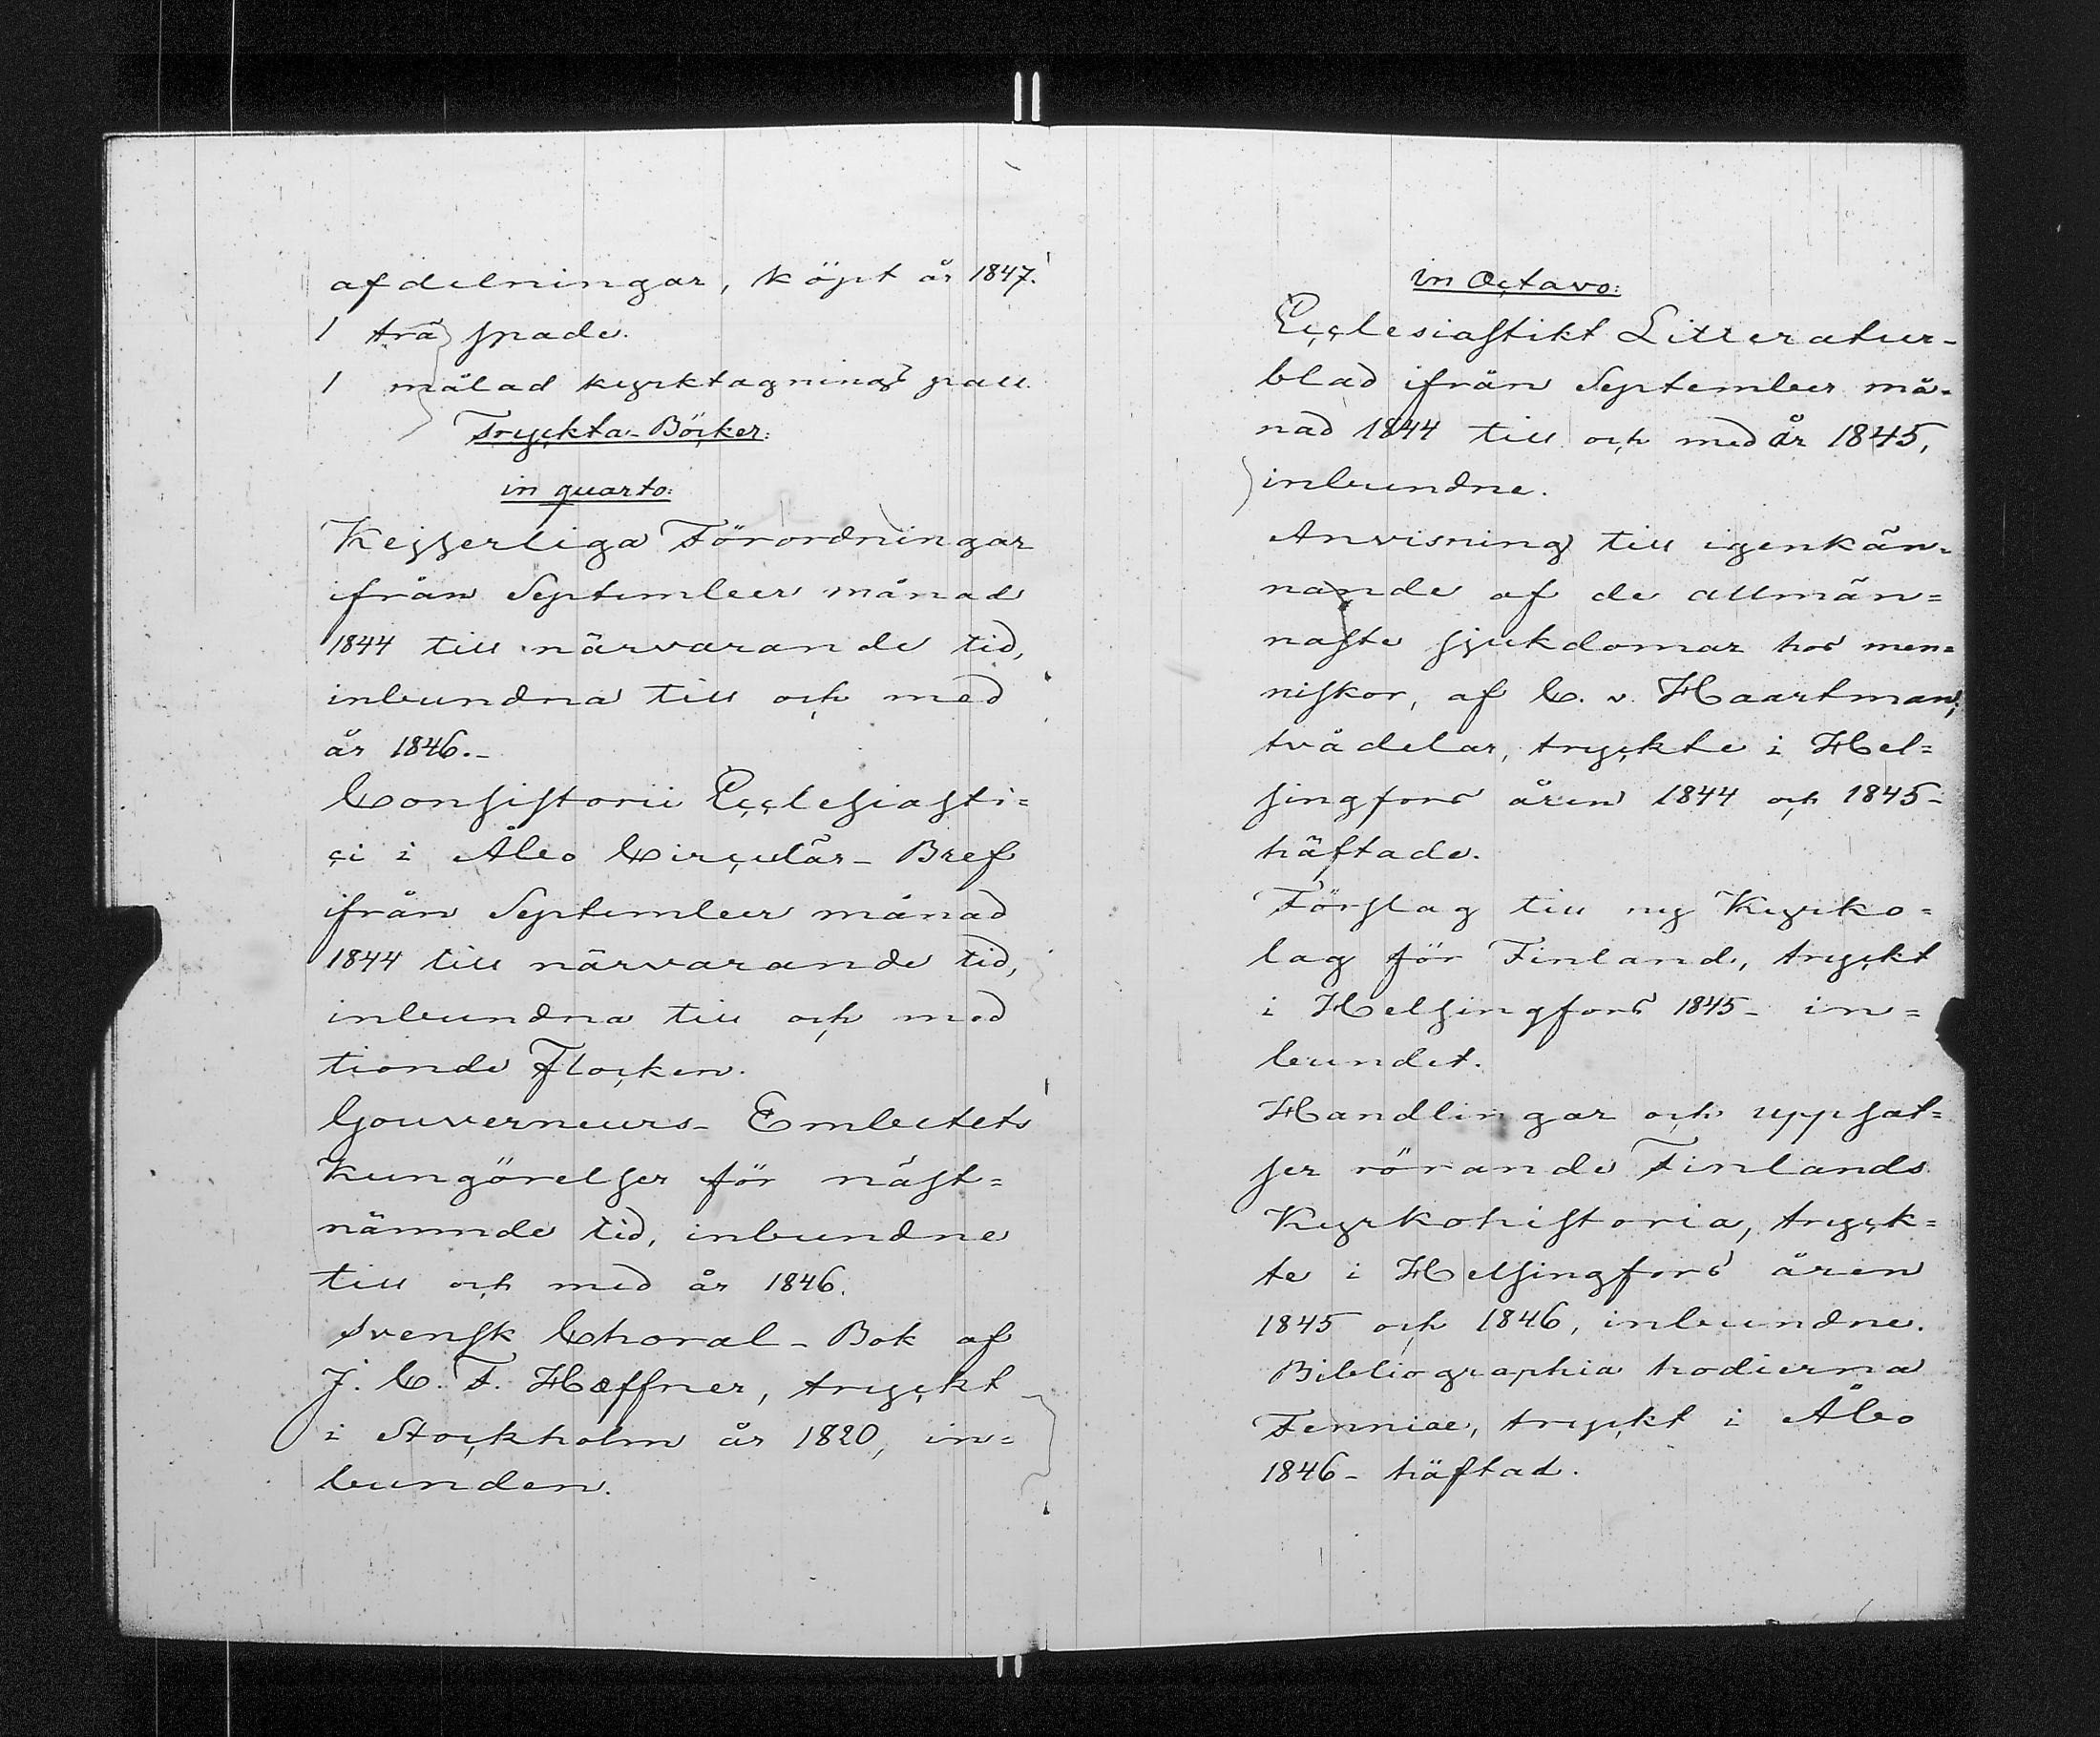 afdelningar, köpt år 1847.
1 trä spade.
1 målad kyrktagnings pall.
Tryckta-Böcker:
in quarto:
Kejserliga Förordningar
ifrån September månad
1844 till närvarande tid,
inbundna till och med
år 1846.-
Consistorii Ecclesiasti=
ci i Åbo Circulär-Bref
ifrån September månad
1844 till närvarande tid,
inbundna till och med
tionde Flocken.
Gouverneurs-Embetets
Kungörelser för näst=
nämnde tid, inbundne
till och med år 1846.
Svensk Choral-Bok af
J. C. F. Hæffner, tryckt
i Stockholm år 1820, in=
bunden.
in Octavo:
Ecclesiastikt Litteratur-
blad ifrån September må-
nad 1844 till och med år 1845,
inbundne.
Anvisning till igenkän=
nande af de allmän=
naste sjukdomar hos men=
niskor, af C. v. Haartman,
två delar, tryckte i Hel=
singfors åren 1844 och 1845-
häftade.
Förslag till ny Kyrko=
lag för Finland, tryckt
i Helsingfors 1845- in=
bundet.
Handlingar och uppsat=
ser rörande Finlands
Kyrkohistoria, tryck=
te i Helsingfors åren
1845 och 1846, inbundne.
Bibliographia hodierna
Fenniae, tryckt i Åbo
1846- häftad.